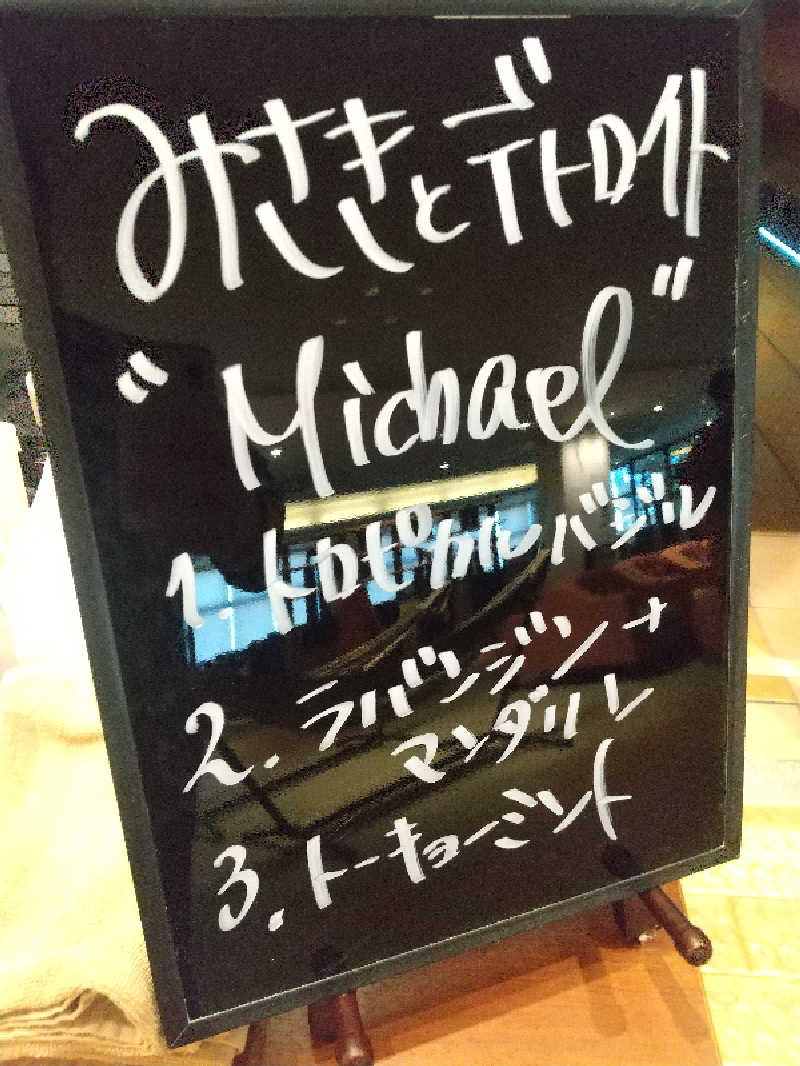 みささとデトロイト
"Michael"
1. トロピカルバジル
2. ラバンジン+
マンダリン
3. トーキョーミント